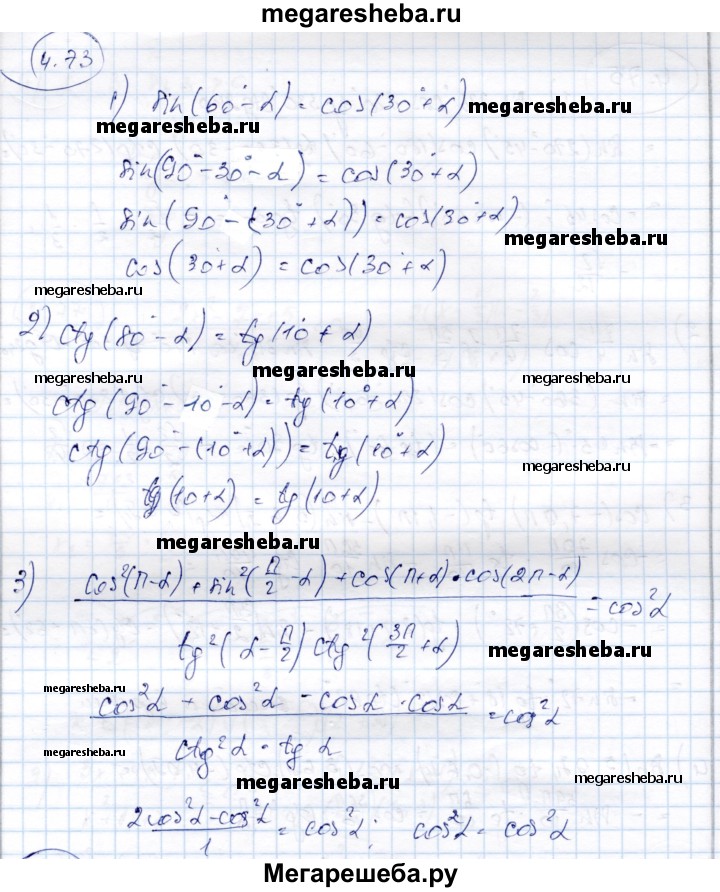 megaresheba.ru
4.73
1) sin(60°-α) = cos(30°+α)
megaresheba.ru
megaresheba.ru
sin(90°-30°-α) = cos(30°+α)
sin(90°-(30°+α)) = cos(30°+α)
megaresheba.ru
cos(30+α) = cos(30°+α)
megaresheba.ru
2) ctg(80°-α) = tg(10°+α)
megaresheba.ru
megaresheba.ru
megaresheba.ru
ctg(90°-10°-α) = tg(10°+α)
ctg(90°-(10°+α)) = tg(10°+α)
megaresheba.ru
tg(10+α) = tg(10+α)
megaresheba.ru
3) cos²(π-α) + sin²(π/2-α) + cos(π+α)·cos(2π-α) / tg²(α-π/2) ctg²(3π/2+α) = cos²α
megaresheba.ru
megaresheba.ru
cos²α + cos²α - cosα·cosα / ctg²α·tg α = cos²α
megaresheba.ru
megaresheba.ru
megaresheba.ru
2cos²α-cos²α / 1 = cos²α; cos²α = cos²α
Мегарешеба.ру